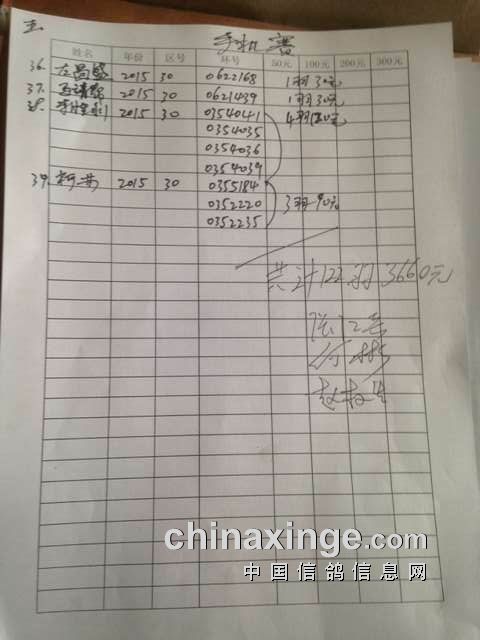 五
手机赛
姓名 年份 区号 环号 50元 100元 200元 300元
36. 左昌盛 2015 30 0622168 1羽30元
37. 2015 30 0621439 1羽30元
38. 2015 30 0354041 4羽120元
0354035
0354036
0354039
39. 2015 30 0355184
0352220 3羽90元
0352235
共计122羽3660元
chinaxinge.com
中国信鸽信息网